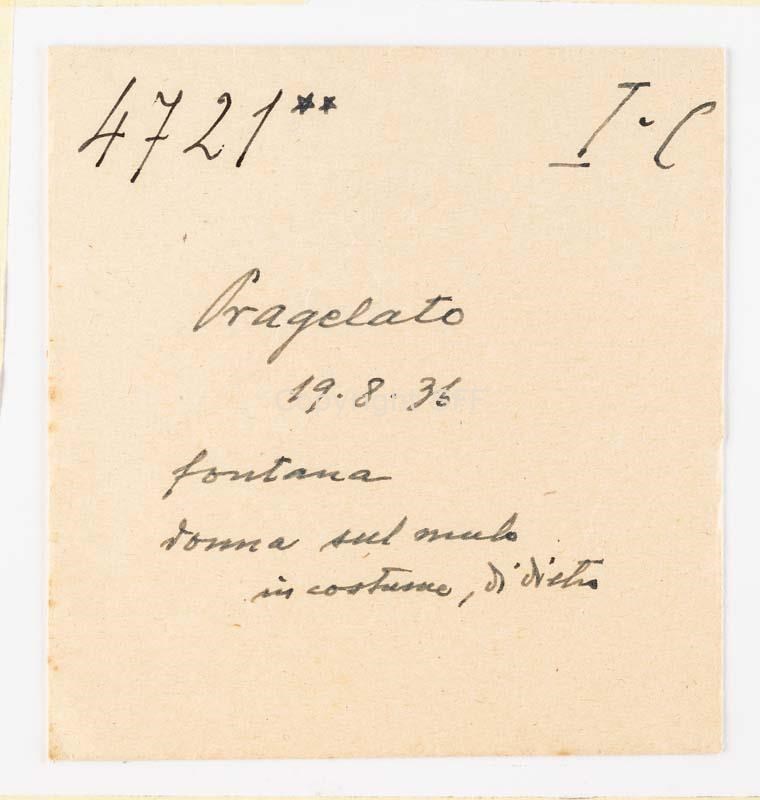 4721** I-C
Pragelato
19.8.36
fontana
donna sul mulo
in costume, di dietro